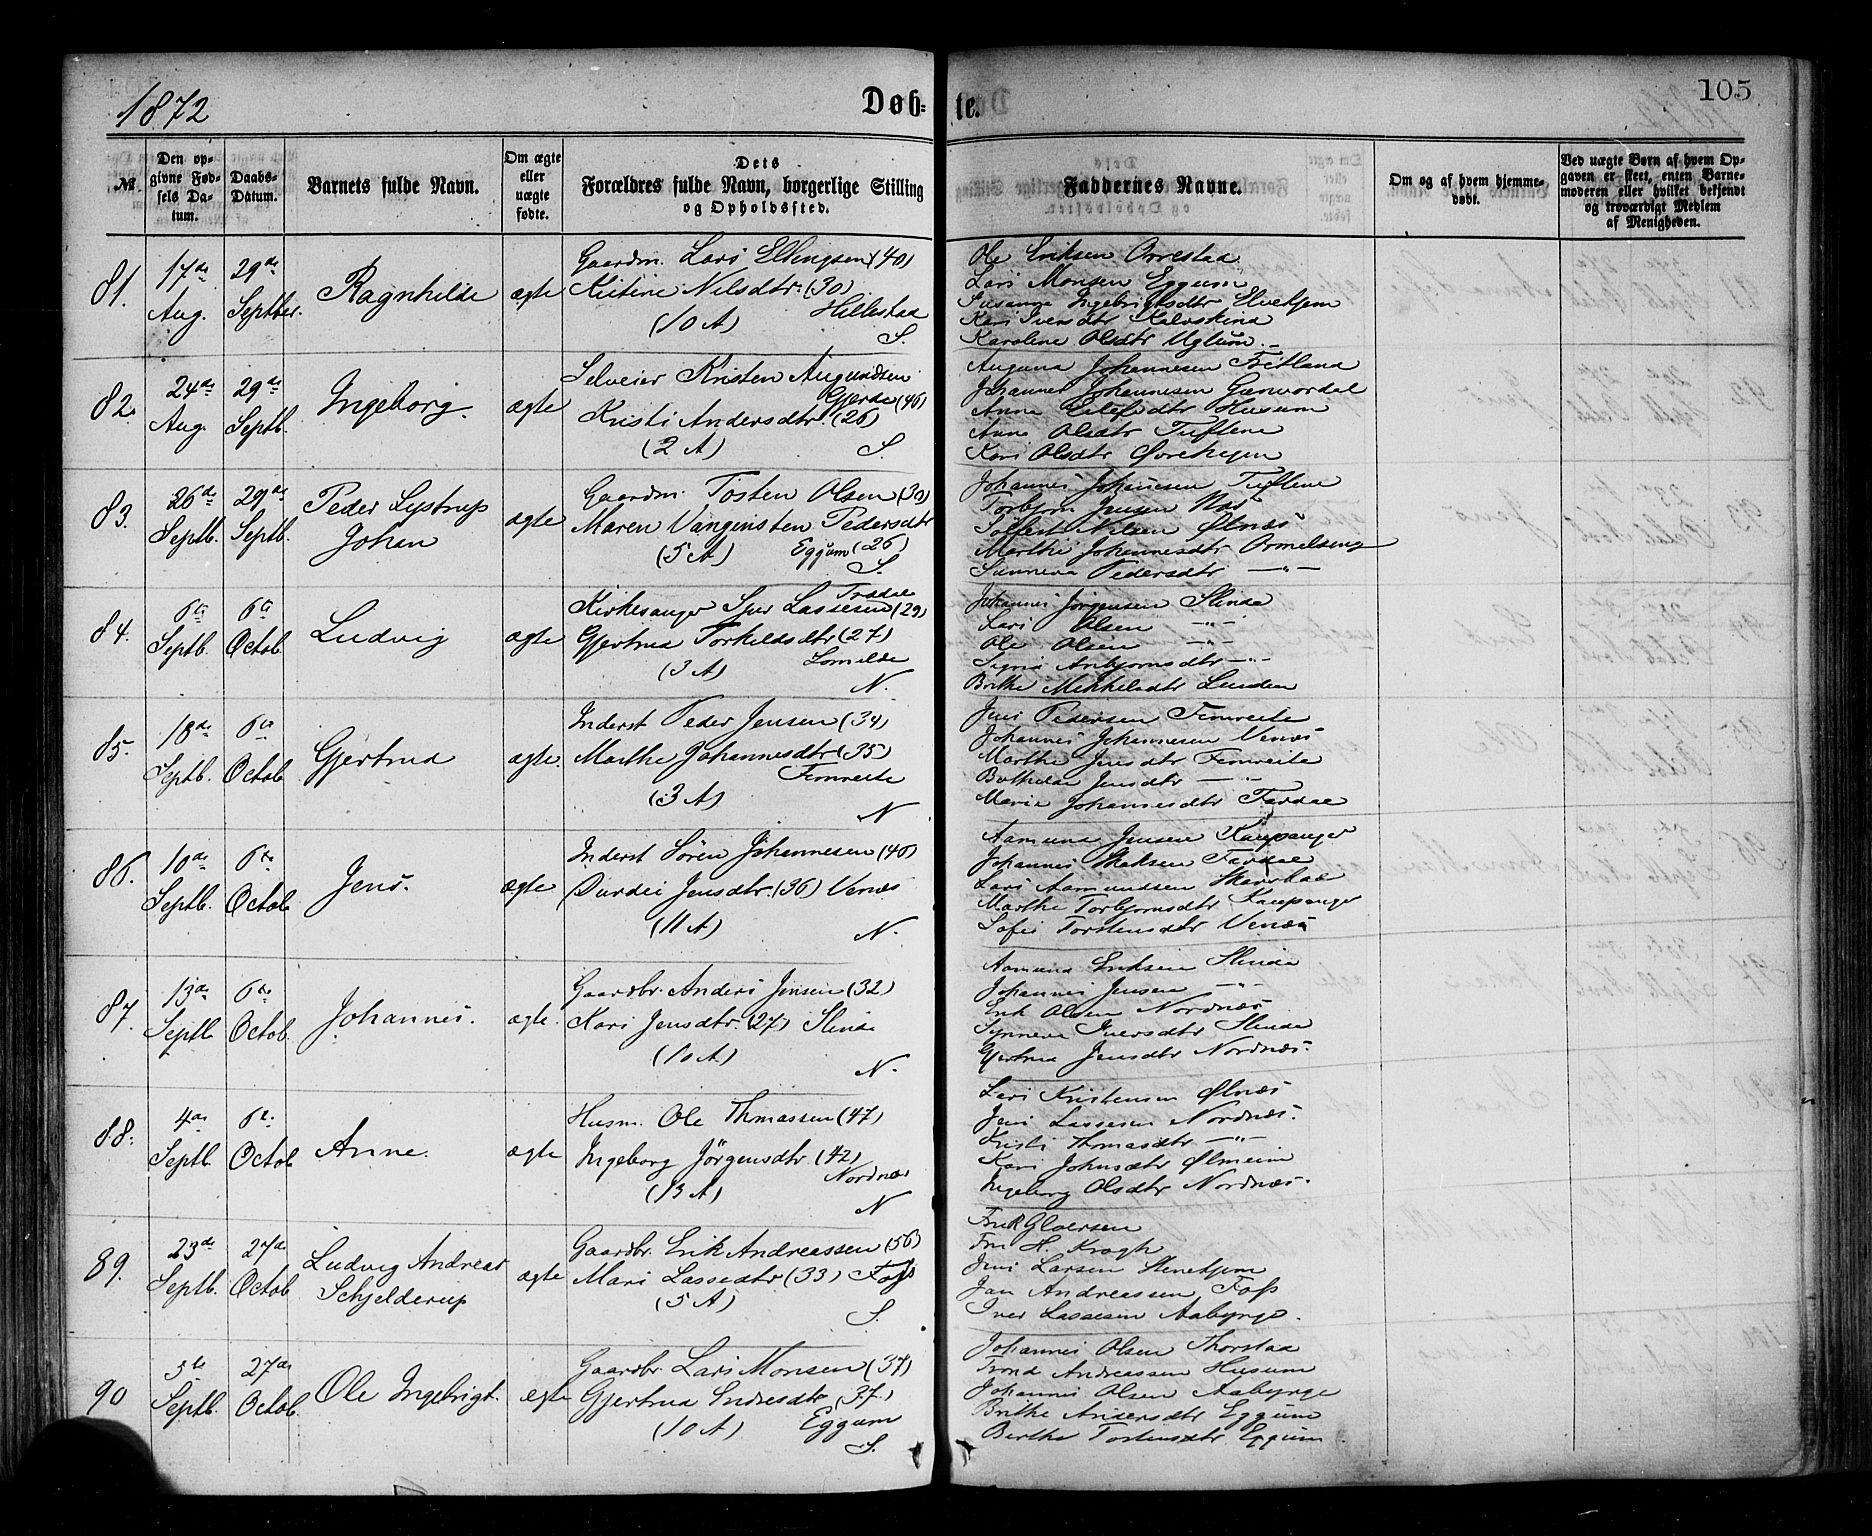 1872
Døb-
te.
105
№
Den op-
givne Fød-
sels Da-
tum.
Daabs-
Datum.
Barnets fulde Navn.
Om ægte
eller
uægte
fødte.
Dets
Forældres fulde Navn, borgerlige Stilling
og Opholdssted.
Faddernes Navne.
Om og af hvem hjemme-
døbt.
Ved uægte Børn af hvem Op-
gaven er skeet, enten Barne-
moderen eller hvilket bekjendt
og troværdigt Medlem
af Menigheden.
81.
17de
Aug.
29de
Septber.
Ragnhilde
ægte
Gaardm. Lars Ellingsen (40)
Kistine Nilsdtr. (30)
Hillestad
(10 A)
S.
Ole Eriksen Orrestad
Lars Monsen Eggum
Susanna Ingebrigtsdtr Elvekjem
Kari Iversdtr Kalvskind
Karoline Olsdtr Uglum.
82.
24de
Aug.
29de
Septb.
Ingeborg.
ægte
Selveier Kristen Augundsen
Gjerde (46)
Kristi Andersdtr. (26)
(2 A)
S.
Augund Johannesen Fretland
Johannes Johannesen
Anna Eilefsdtr Husum
Anna Olsdtr Tuftene
Kari Olsdtr Øvrehejen
83.
26de
Septb.
29de
Septb.
Peder Lystrup
Johan
ægte
Gaardm. Tosten Olsen (30)
Maren Vangensten Pedersdtr
(5 A) Eggum (26)
S.
Johannes Johannesen Tuftene
Torbjørn Jensen Nær
Solfest Nilsen Ølnæs
Marthe Johannesdtr Ormelseng
Sunneva Pedersdtr — " —
84.
6te
Septb.
6te
Octob.
Ludvig
ægte
Trædal
Kirkesanger Sjur Lassesen (29)
Gjertrud Torkildsdtr (27)
Lomelde
(3 A)
N.
Johannes Jørgensen Slinde
Lars Olsen — " —
Ole Olsen — " —
Sigrid Anbjørnsdtr — " —
Brithe Mikkelsdtr Lunden
85.
18de
Septb.
6te
Octob
Gjertrud
ægte.
Inderst Peder Jensen (34)
Marthe Johannesdtr (35)
Fimreite
(3 A)
N
Jens Pedersen Fimreite
Johannes Johannesen Venæs
Marthe Jensdtr Fimreite
Botholde Jensdtr — " —
Marie Johannesdtr Fardal
86.
10de
Septb.
6te
Octob
Jens.
ægte
Inderst Søren Johannesen (40)
Durdei Jensdtr. (36) Venæs
(11 A)
N.
Aamund Jensen Kaupanger
Johannes Skaksen Fardal
Lars Aamundsen Skarsbad
Marthe Torbjørnsdtr Kaupanger
Sofie Torstensdtr Venæs
87.
13de
Septb
6te
Octob
Johannes.
ægte.
Gaardbr. Anders Jensen (32)
Kari Jensdtr. (27) Slinde
(10 A)
N.
Aamund Eriksen Slinde
Johannes Jensen — " —
Erik Olsen Nordnæs
Synneva Iversdtr Slinde
Gjertrud Jensdtr Nordnæs.
88.
4de
Septb
6te
Octob
Anne.
ægte
Husm. Ole Thmassen (47)
Ingeborg Jørgensdtr (42)
Nordnæs
(13 A)
N
Lars Kristensen Ølnæs
Jens Lassesen Nordnæs.
Kristi Thomasdtr — " —
Kari Johnsdtr Ølmeim
Ingeborg Olsdtr Nordnæs.
89.
23de
Septb.
27de
Octob
Ludvig Andreas
Schjelderup
ægte
Gaardbr. Erik Andreassen (56)
Mari Lassedtr (33) Foss
(5 A)
S.
Fru R Gloersen
Fru H. Krogh
Jens Larsen Stenehjem
Jan Andreassen Foss
Iver Lassesen Aabyrge.
90
5te
Septb.
27de
Octob.
Ole Ingebrigt.
ægte
Gaardbr. Lars Monsen (37)
Gjertrud Endresdtr (37)
(10 A) Eggum
S.
Johannes Olsen Thorstad
Trond Andreassen Husum
Johannes Olsen Aabyrge
Brithe Andersdtr Eggum
Berthe Tostensdtr Eggum